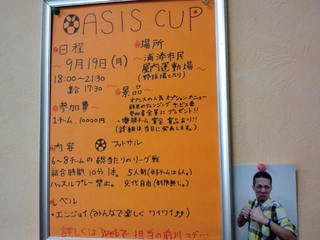 OASIS CUP
日程
9月19日(月)
18:00~21:30
集合 17:30
参加費
1チーム 10000円
場所
浦添市民
屋内運動場
(野球場となり)
景品
参加者全員にプレゼント!!
優勝チーム 賞金・賞品あり!!
(詳細は当日に発表します。)
内容 フットサル
6~8チームの総当たりのリーグ戦
試合時間10分1本。 5人制(キチームは6人。)
ハッスルプレー禁止。 交代自由(制限無し。)
レベル
・エンジョイ(みんなで楽しくワイワイ♪)
詳しくはWebで 担当の前川まで…